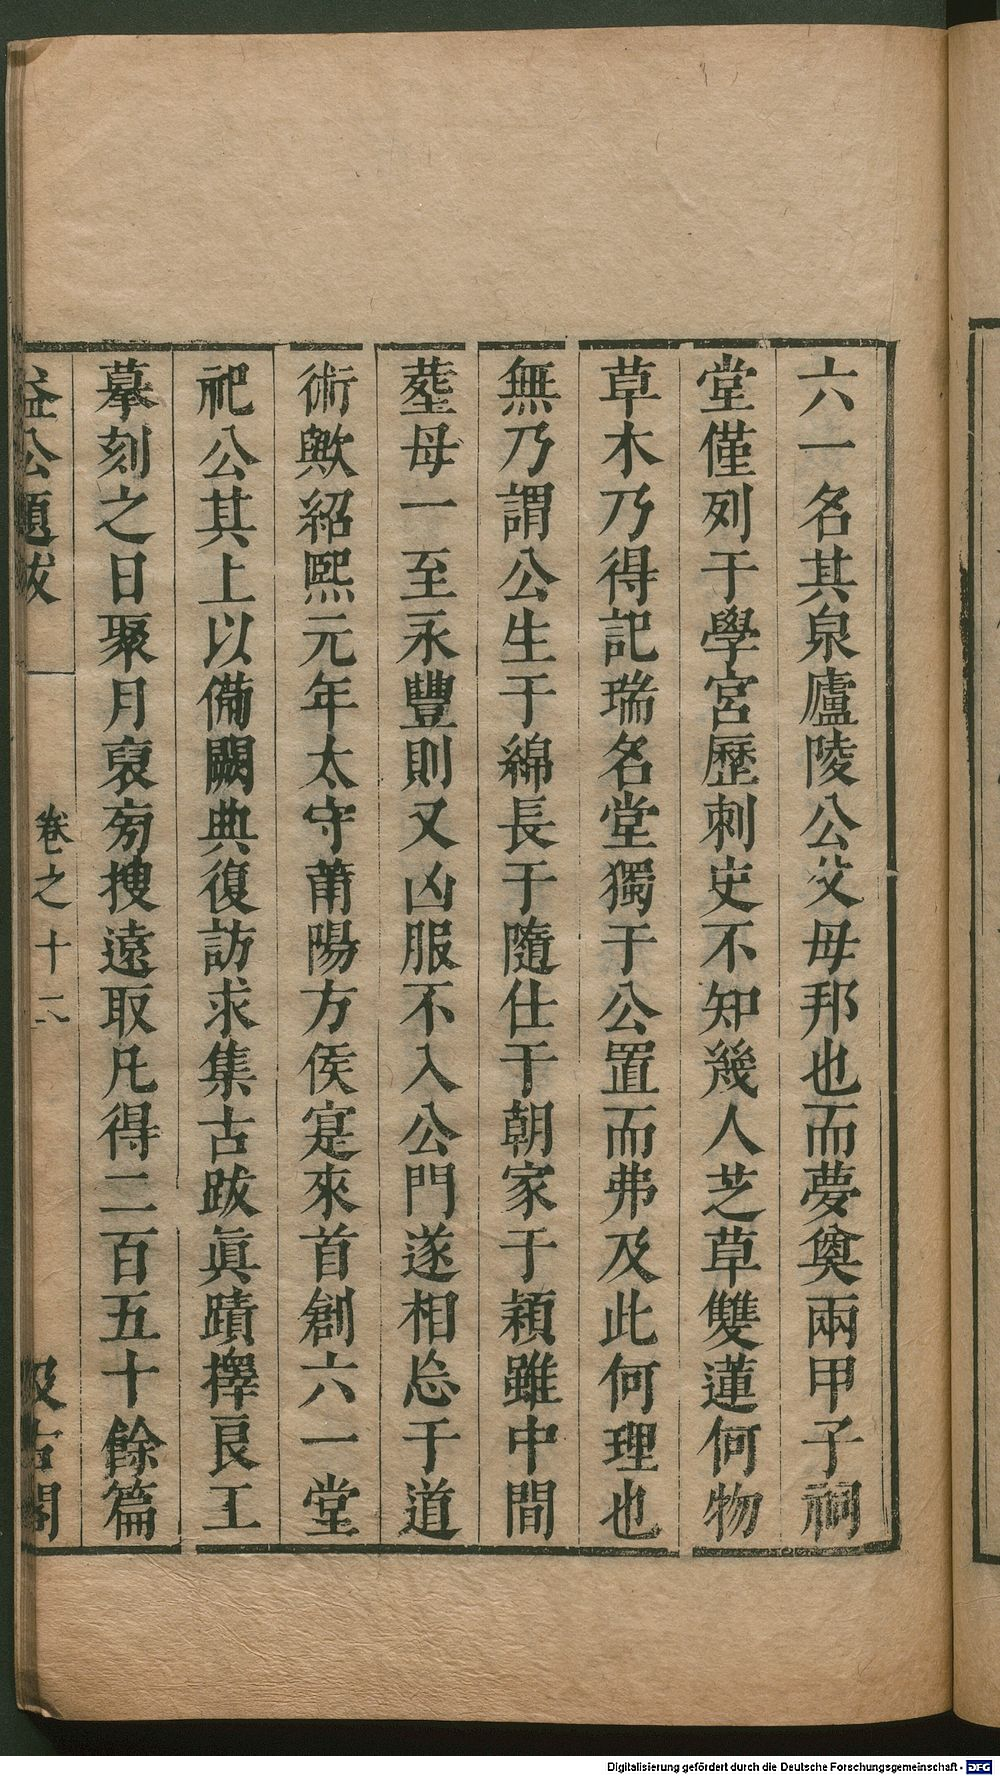 六一名其泉廬陵公父母邦也而夢奠兩甲子祠
堂僅列于學宮歷刺史不知幾人芝草雙蓮何物
草木乃得記瑞名堂獨于公置而弗及此何理也
無乃謂公生于綿長于隨仕于朝家于潁雖中間
塟母一至永豐則又凶服不入公門遂相忘于道
術歟紹熙元年太守莆陽方侯寔來首創六一堂
祀公其上以備闕典復訪求集古跋眞蹟擇良工
摹刻之日聚月裒旁搜遠取凡得二百五十餘篇
益公題跋 卷之十二 汲古閣
Digitalisierung gefördert durch die Deutsche Forschungsgemeinschaft - DFG